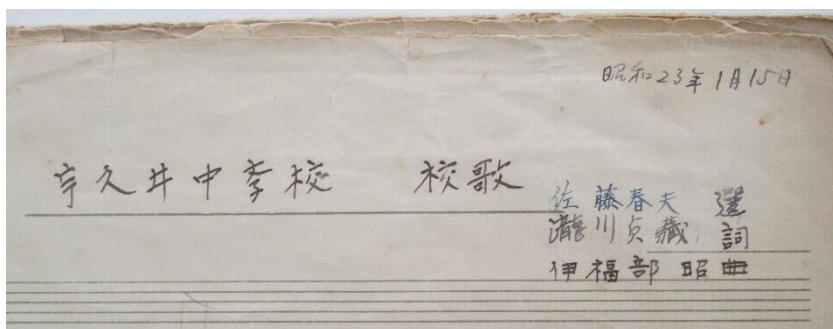 昭和23年1月15日
宇久井中学校 校歌
佐藤春夫 選
瀧川貞蔵 詞
伊福部昭曲